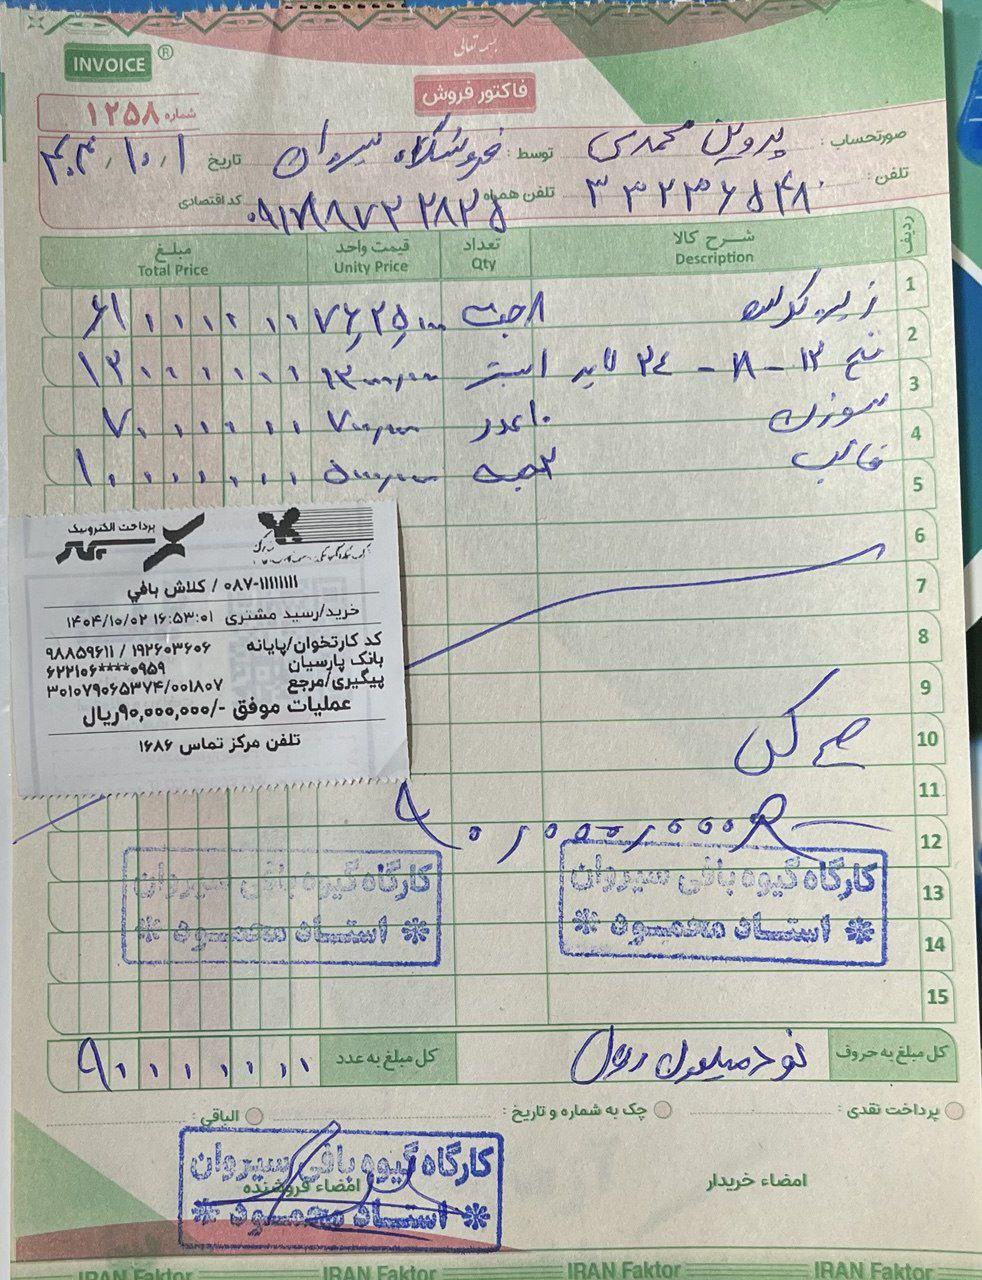 بسمه تعالی
INVOICE ®
فاکتور فروش
شماره ۱۲۵۸
صورتحساب : پروین محمدی توسط : فروشگاه سیروان تاریخ ۴۰۴/۱۰/۱
تلفن : ۳۳۲۳۶۵۴۸۰ تلفن همراه کد اقتصادی
ردیف شرح کالا تعداد قیمت واحد مبلغ
Description Qty Unity Price Total Price
1 ۸ جفت ۷۶۲۵۰۰۰ ۶۱۰۰۰۰۰۰
2 نخ ۱۲ - ۸ - ۲۴ لایه ۱۳۰۰۰۰۰۰
3 سوزن ۱۰ عدد ۷۰۰۰۰۰ ۷۰۰۰۰۰۰
4 قالب ۲ جفت ۵۰۰۰۰۰۰ ۱۰۰۰۰۰۰۰
5
6
7
8
9
10
11
12
13
14
15
پرداخت الکترونیک
۰۸۷-۱۱۱۱۱۱۱۱ / کلاش بافي
خرید/رسید مشتری ۱۴۰۴/۱۰/۰۲ ۱۶:۵۳:۰۱
کد کارتخوان/پایانه ۱۹۲۶۰۳۶۰۶ / ۹۸۸۵۹۶۱۱
بانک پارسیان ۶۲۲۱۰۶****۰۹۵۹
پیگیری/مرجع ۳۰۱۰۷۹۰۶۵۳۷۴/۰۰۱۸۰۷
عملیات موفق -/۹۰,۰۰۰,۰۰۰ریال
تلفن مرکز تماس ۱۶۸۶
۹۰,۰۰۰,۰۰۰
کارگاه گیوه بافی سیروان
* استاد محمود *
کارگاه گیوه بافی سیروان
* استاد محمود *
کل مبلغ به حروف نود میلیون ریال کل مبلغ به عدد ۹۰۰۰۰۰۰۰
پرداخت نقدی : چک به شماره و تاریخ : الباقی :
امضاء خریدار امضاء فروشنده
کارگاه گیوه بافی سیروان
* استاد محمود *
IRAN Faktor IRAN Faktor IRAN Faktor IRAN Faktor